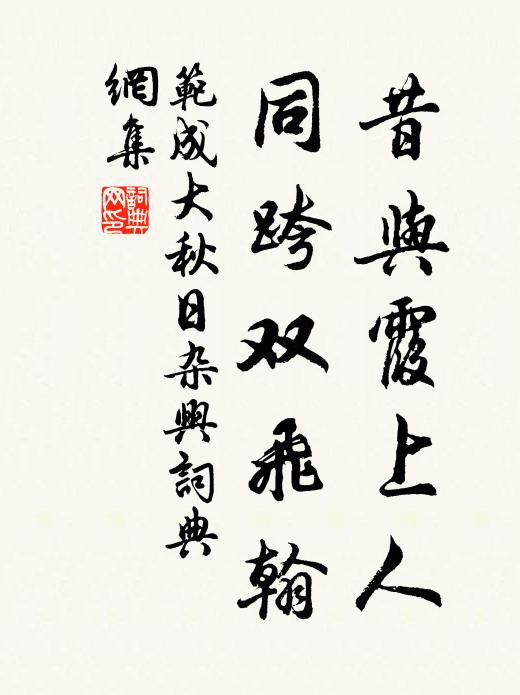 昔與霞上人
同跨双飛翰
範成大秋日杂興詞典
網集
詞典网印